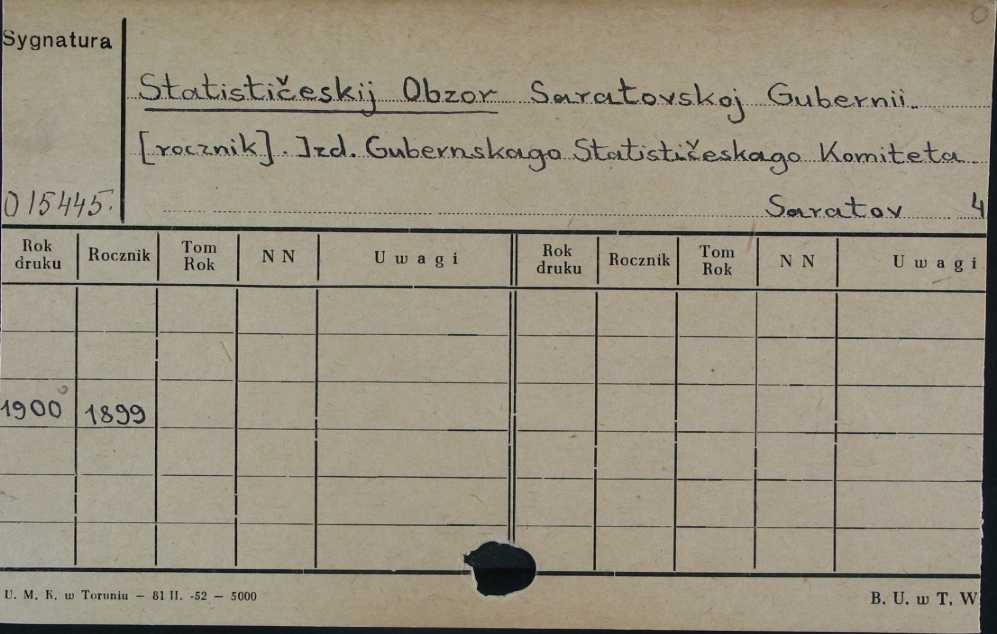 Sygnatura
Statističeskij Obzor Saratovskoj Gubernii.
[rocznik]. Izd. Gubernskago Statističeskago Komiteta
015445. Saratov 4
Rok druku Rocznik Tom Rok N N Uwagi Rok druku Rocznik Tom Rok N N Uwagi
1900 1899
U. M. K. w Toruniu — 81 II. -52 — 5000 B. U. w T. W